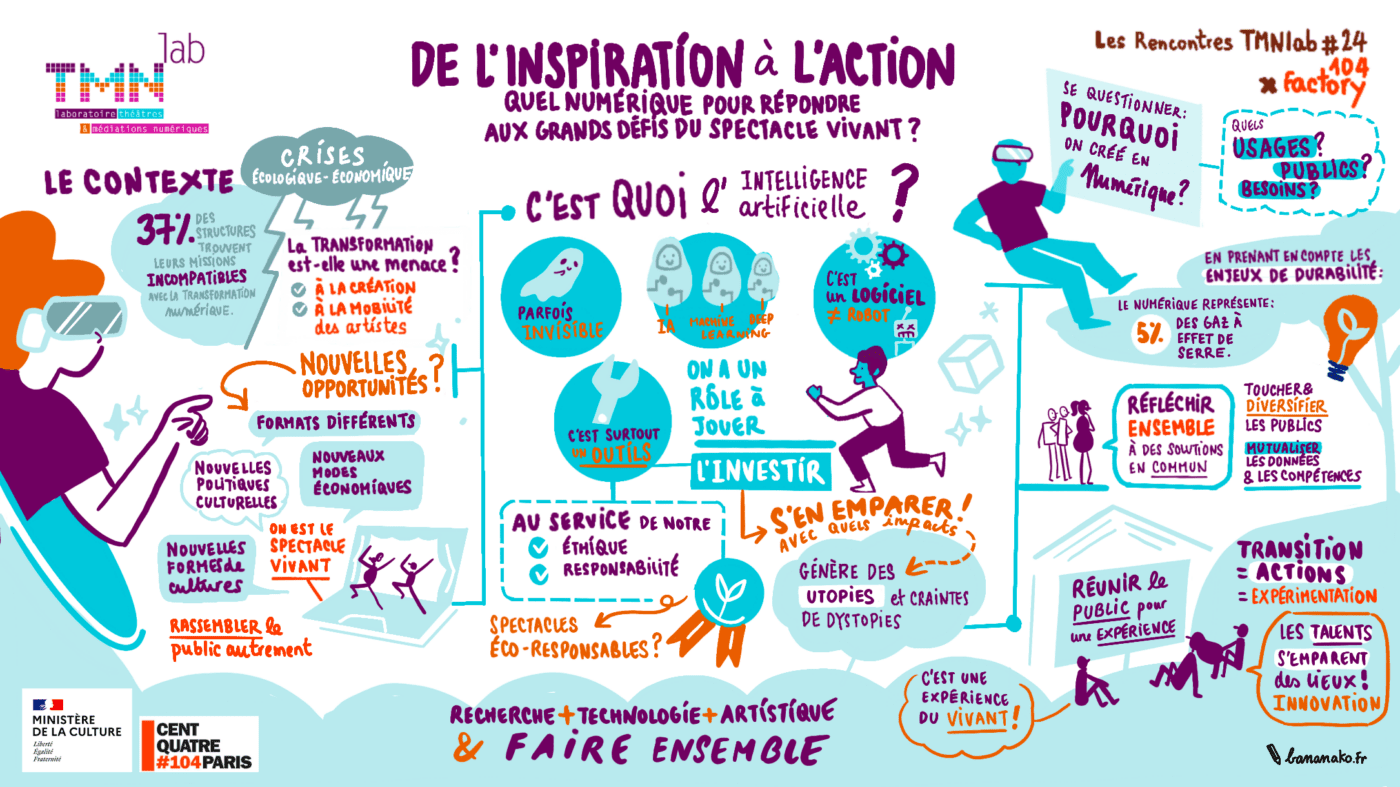 TMNlab
laboratoire théâtres
& médiations numériques
DE L'INSPIRATION à L'ACTION
QUEL NUMÉRIQUE POUR RÉPONDRE
AUX GRANDS DÉFIS DU SPECTACLE VIVANT ?
Les Rencontres TMNlab #24
x 104
factory
LE CONTEXTE
CRISES
ÉCOLOGIQUE - ÉCONOMIQUE
37% DES
STRUCTURES
TROUVENT
LEURS MISSIONS
INCOMPATIBLES
AVEC LA TRANSFORMATION
NUMÉRIQUE.
La TRANSFORMATION
est-elle une menace ?
À LA CRÉATION
À LA MOBILITÉ
des artistes
NOUVELLES
OPPORTUNITÉS ?
FORMATS DIFFÉRENTS
NOUVELLES
POLITIQUES
CULTURELLES
NOUVEAUX
MODES
ÉCONOMIQUES
ON EST LE
SPECTACLE
VIVANT
NOUVELLES
FORMES de
cultures
RASSEMBLER le
public autrement
C'EST QUOI l' INTELLIGENCE
artificielle ?
PARFOIS
INVISIBLE
IA
MACHINE
LEARNING
DEEP
C'EST
un LOGICIEL
≠ ROBOT
C'EST SURTOUT
un OUTILS
ON A UN
RÔLE à
JOUER
L'INVESTIR
AU SERVICE DE NOTRE
ÉTHIQUE
RESPONSABILITÉ
SPECTACLES
ÉCO-RESPONSABLES ?
S'EN EMPARER !
AVEC quels impacts
GÉNÈRE DES
UTOPIES et CRAINTES
DE DYSTOPIES
SE QUESTIONNER :
POURQUOI
ON CRÉÉ EN
Numérique ?
QUELS
USAGES ?
PUBLICS ?
BESOINS ?
EN PRENANT EN COMPTE LES
ENJEUX DE DURABILITÉ :
LE NUMÉRIQUE REPRÉSENTE :
5% DES GAZ À
EFFET DE
SERRE.
RÉFLÉCHIR
ENSEMBLE
À DES SOLUTIONS
EN COMMUN
TOUCHER &
DIVERSIFIER
LES PUBLICS
MUTUALISER
LES DONNÉES
& LES COMPÉTENCES
RÉUNIR le
PUBLIC pour
une EXPÉRIENCE
TRANSITION
= ACTIONS
= EXPÉRIMENTATION
LES TALENTS
S'EMPARENT
des LIEUX !
INNOVATION
C'EST UNE
EXPÉRIENCE
DU VIVANT !
RECHERCHE + TECHNOLOGIE + ARTISTIQUE
& FAIRE ENSEMBLE
MINISTÈRE
DE LA CULTURE
Liberté
Égalité
Fraternité
CENT
QUATRE
#104PARIS
bananako.fr